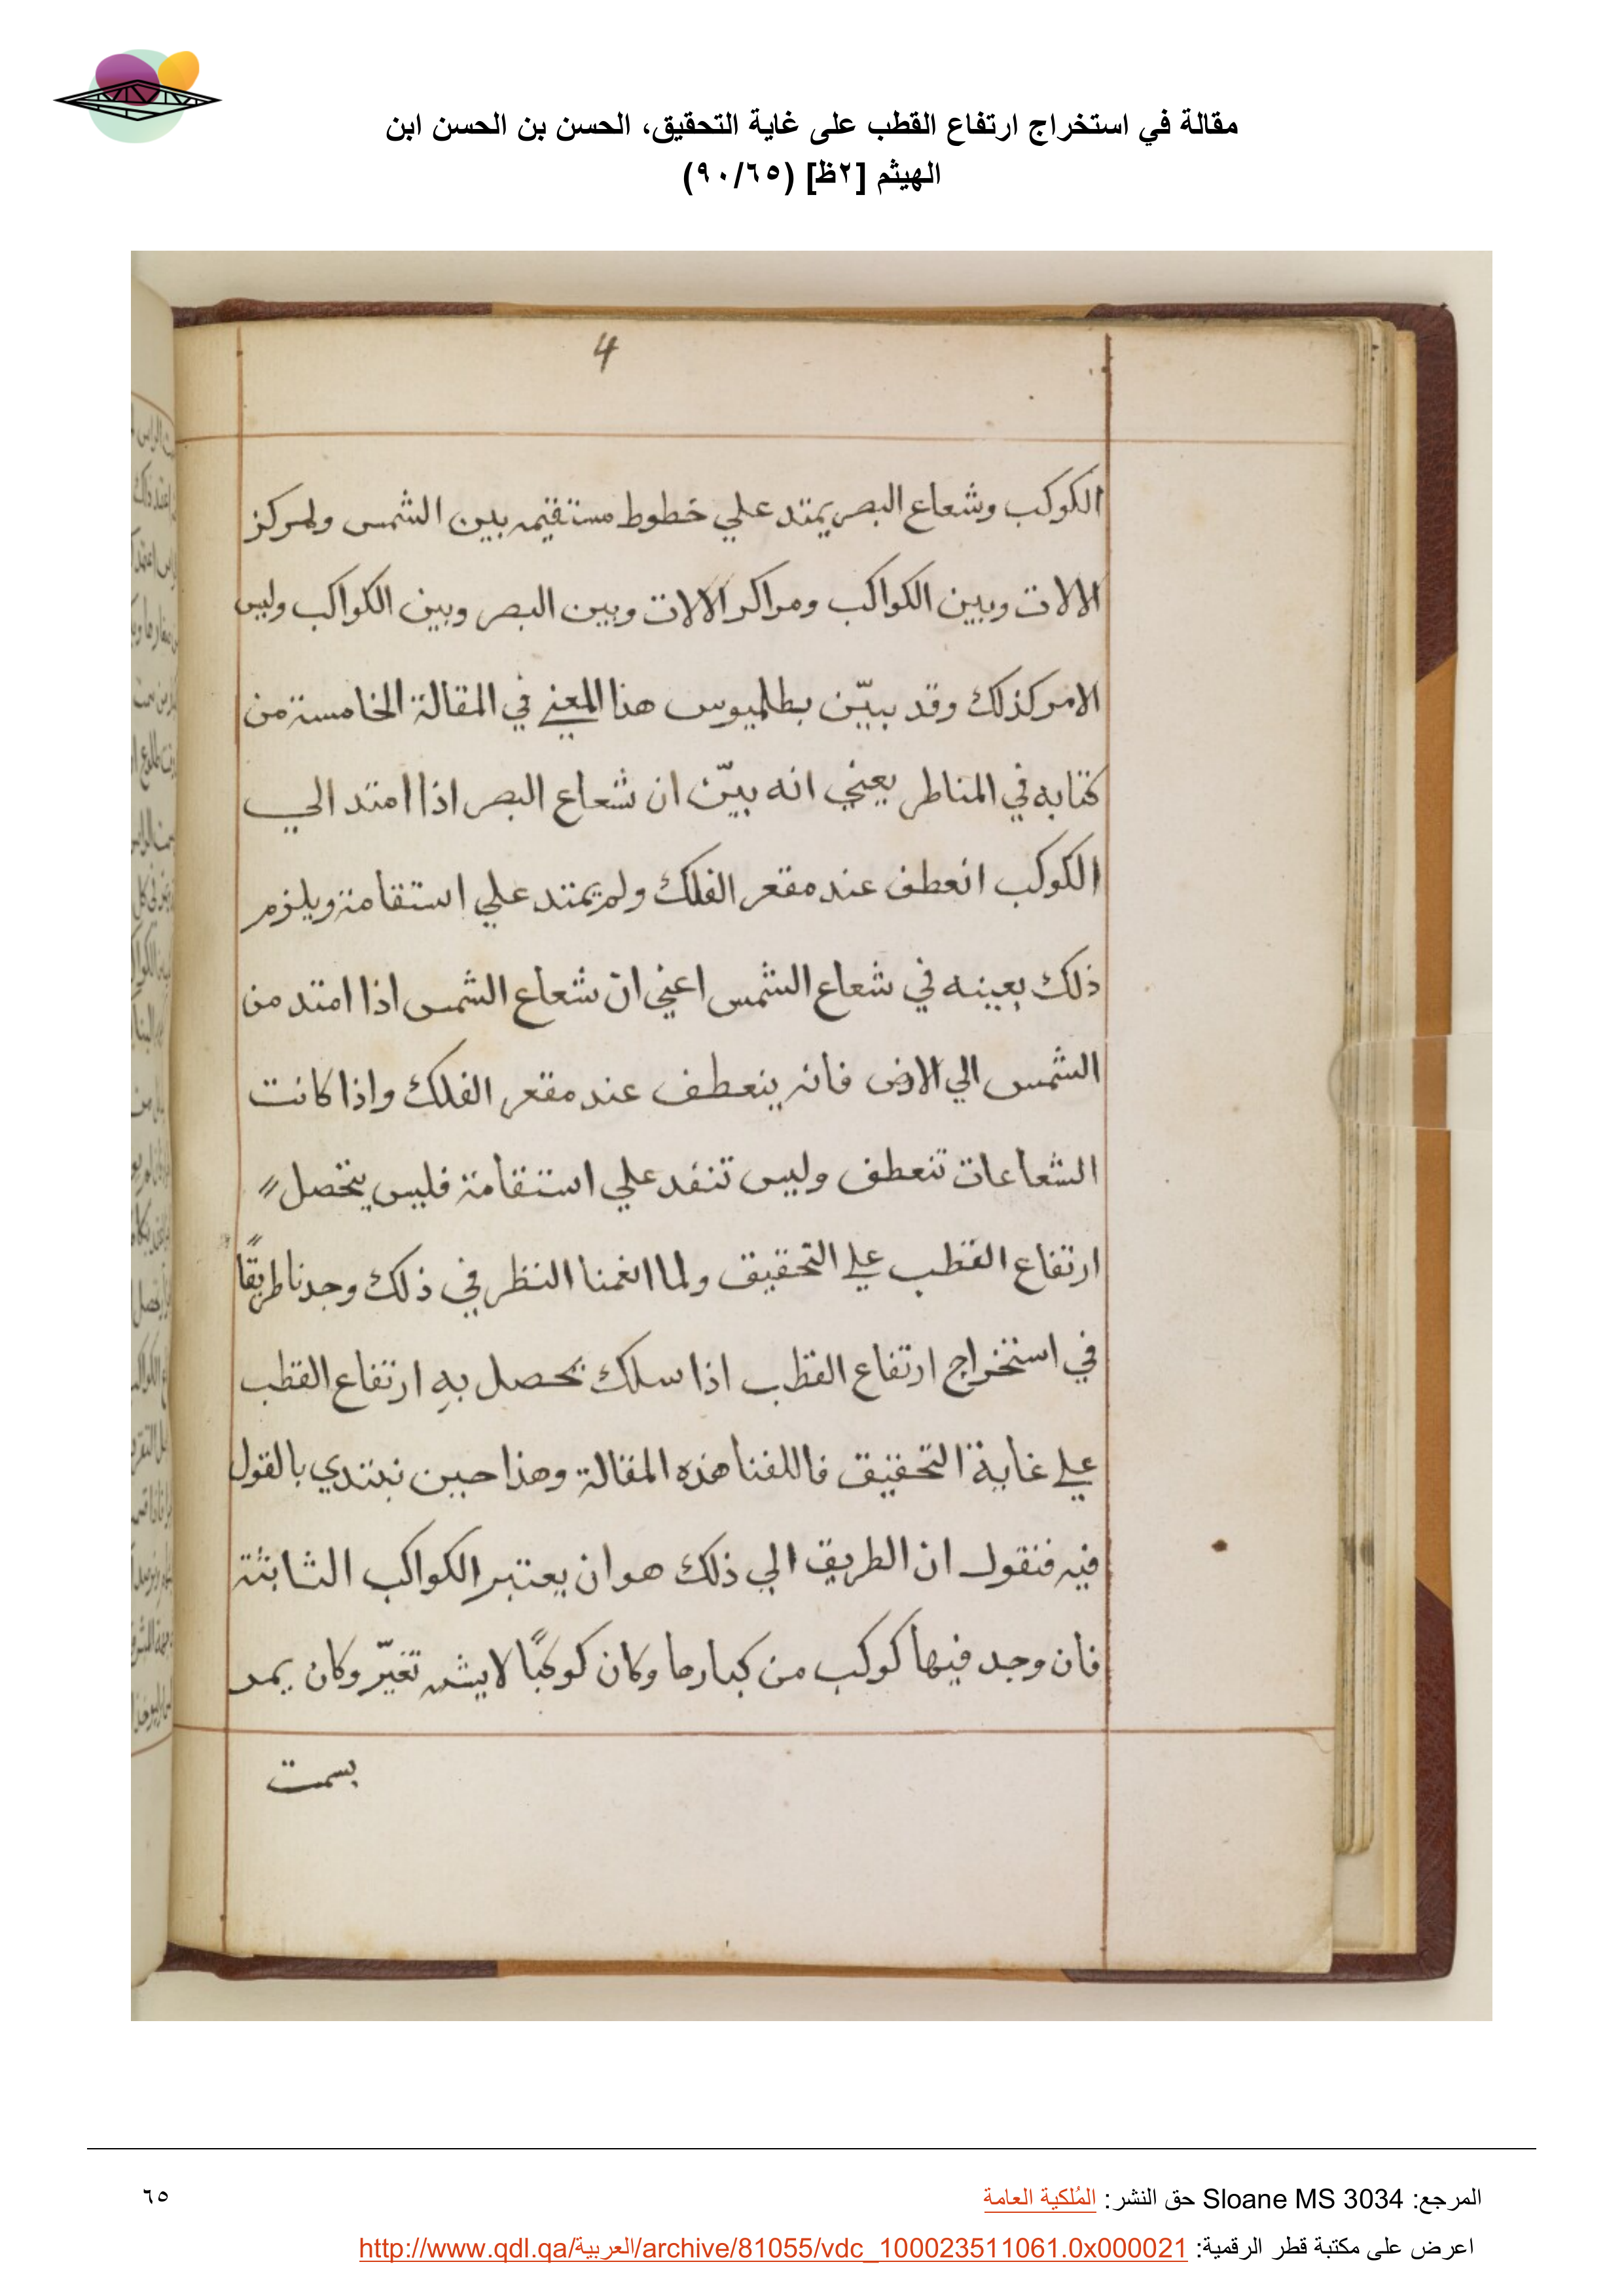 مقالة في استخراج ارتفاع القطب على غاية التحقيق، الحسن بن الحسن ابن
الهيثم [٢ظ] (٩٠/٦٥)
4
الكوكب وشعاع البصر يمتد علي خطوط مستقيمه بين الشمس ولمركز
الالات وبين الكواكب ومراكز الالات وبين البصر وبين الكواكب وليس
الامر كذلك وقد بيّن بطلميوس هذا المعني في المقالة الخامسة من
كتابه في المناظر يعني انه بيّن ان شعاع البصر اذا امتد الي
الكوكب انعطف عند مقعر الفلك ولم يمتد علي استقامة ويلزم
ذلك بعينه في شعاع الشمس اعني ان شعاع الشمس اذا امتد من
الشمس الي الارض فانه ينعطف عند مقعر الفلك واذا كانت
الشعاعات تنعطف وليس تنفد علي استقامة فليس يتحصل
ارتفاع القطب علي التحقيق ولما انغمنا النظر في ذلك وجدنا طريقًا
في استخراج ارتفاع القطب اذا سلك تحصل بهِ ارتفاع القطب
علي غاية التحقيق فاللفنا هذه المقالة وهذا حين نبتدي بالقول
فيه فنقول ان الطريق الي ذلك هو ان يعتبر الكواكب الثابتة
فان وجد فيها كوكب من كبارها وكان كوكبًا لا تغيّر وكان يمر
بسمت
المرجع: Sloane MS 3034 حق النشر: المُلكية العامة
٦٥
اعرض على مكتبة قطر الرقمية: http://www.qdl.qa/العربية/archive/81055/vdc_100023511061.0x000021